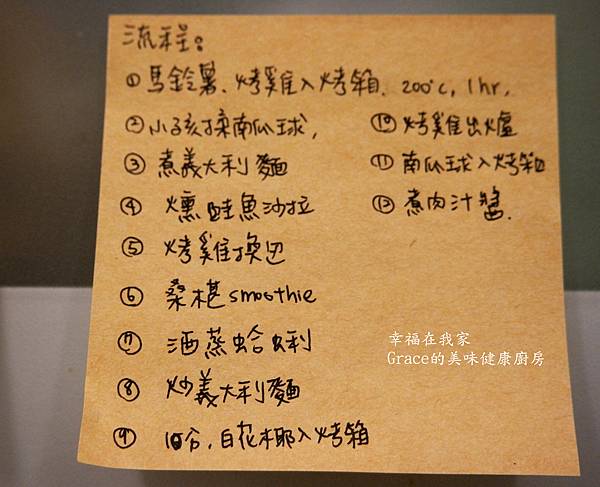 流程:
① 馬鈴薯、烤雞入烤箱、200℃, 1hr.
② 小孩揉南瓜球,
③ 煮義大利麵
④ 燻鮭魚沙拉
⑤ 烤雞換邊
⑥ 桑椹smoothie
⑦ 酒蒸蛤蜊
⑧ 炒義大利麵
⑨ 10分,白花椰入烤箱
⑩ 烤雞出爐
⑪ 南瓜球入烤箱
⑫ 煮肉汁醬.
幸福在我家
Grace的美味健康廚房